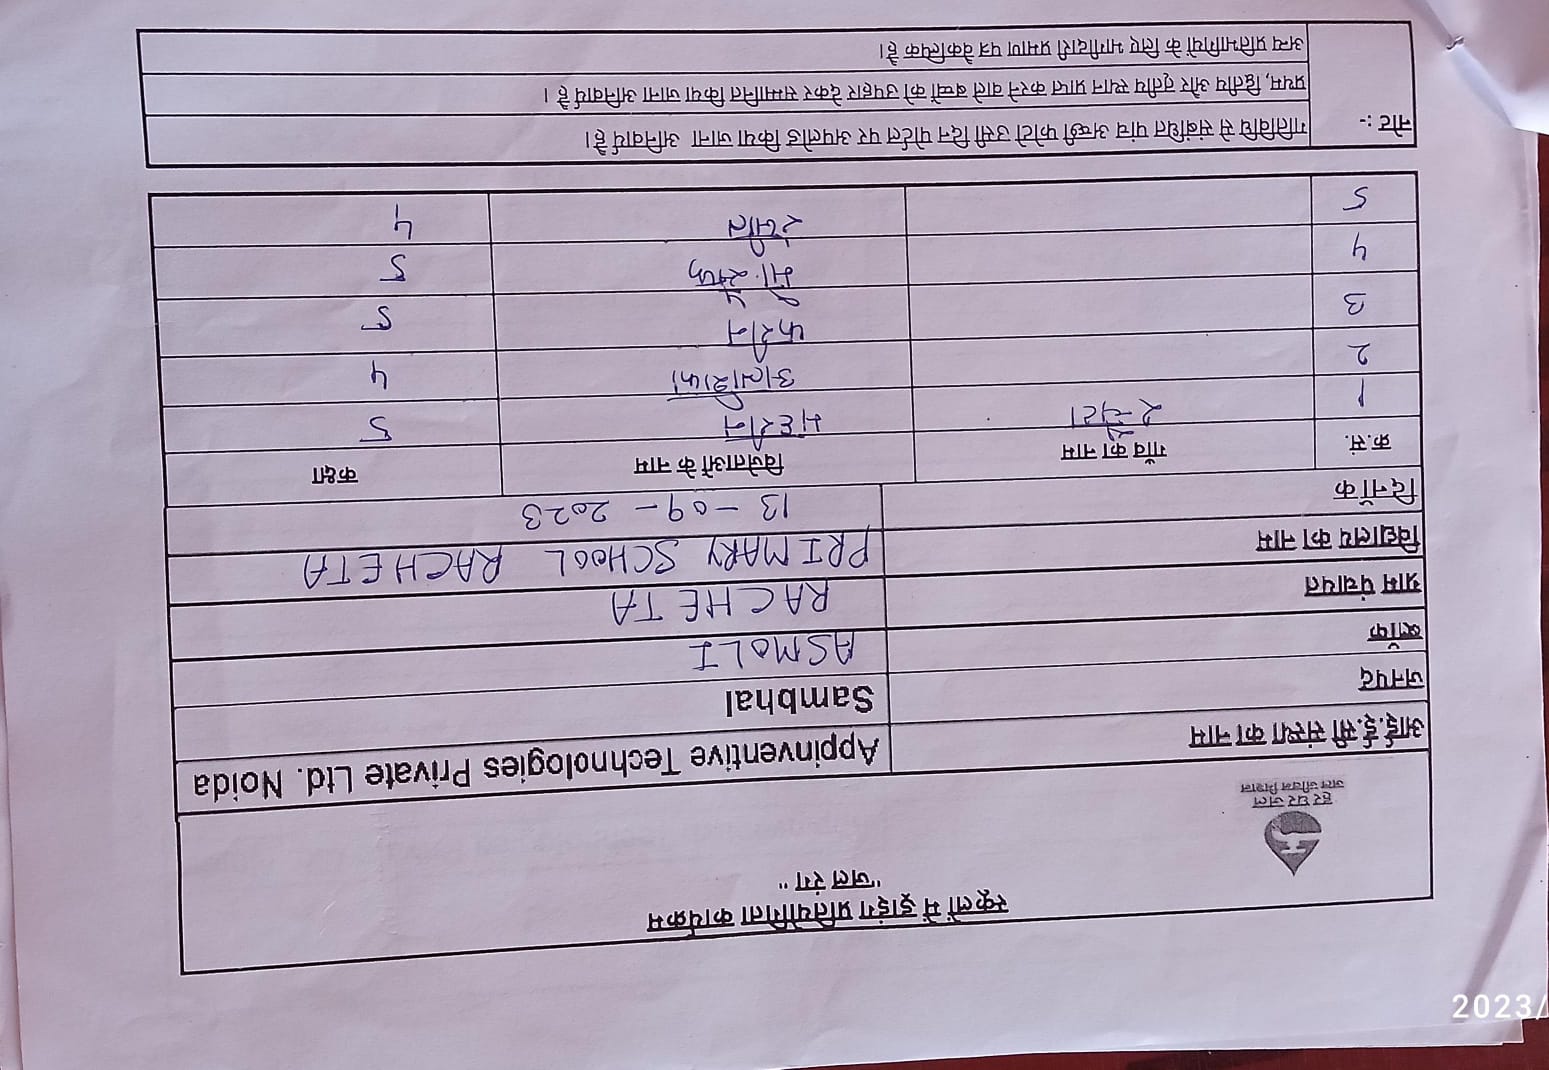 स्कूलों में ड्राइंग प्रतियोगिता कार्यक्रम
"जल रंग"
हर घर जल
जल जीवन मिशन
आई.ई.सी संस्था का नाम Appinventive Technologies Private Ltd. Noida
जनपद Sambhal
ब्लॉक ASMOLI
ग्राम पंचायत RACHETA
विद्यालय का नाम PRIMARY SCHOOL RACHETA
दिनाँक 13-09-2023
क्र.सं. गाँव का नाम विजेताओं के नाम कक्षा
1 रचेटा महरीन 5
2 4
3 5
4 5
5 4
नोट :- गतिविधि से संबंधित पांच अच्छी फोटो उसी दिन पोर्टल पर अपलोड किया जाना अनिवार्य है।
प्रथम, द्वितीय और तृतीय स्थान प्राप्त करने वाले बच्चों को उपहार देकर सम्मानित किया जाना अनिवार्य है ।
अन्य प्रतिभागियों के लिए भागीदारी प्रमाण पत्र वैकल्पिक है।
2023/